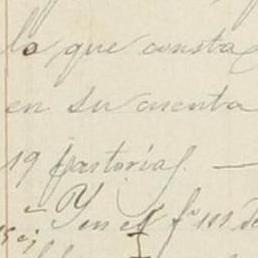 lo que consta
en su cuenta
19 partorial. —
Y en el fº 111 de